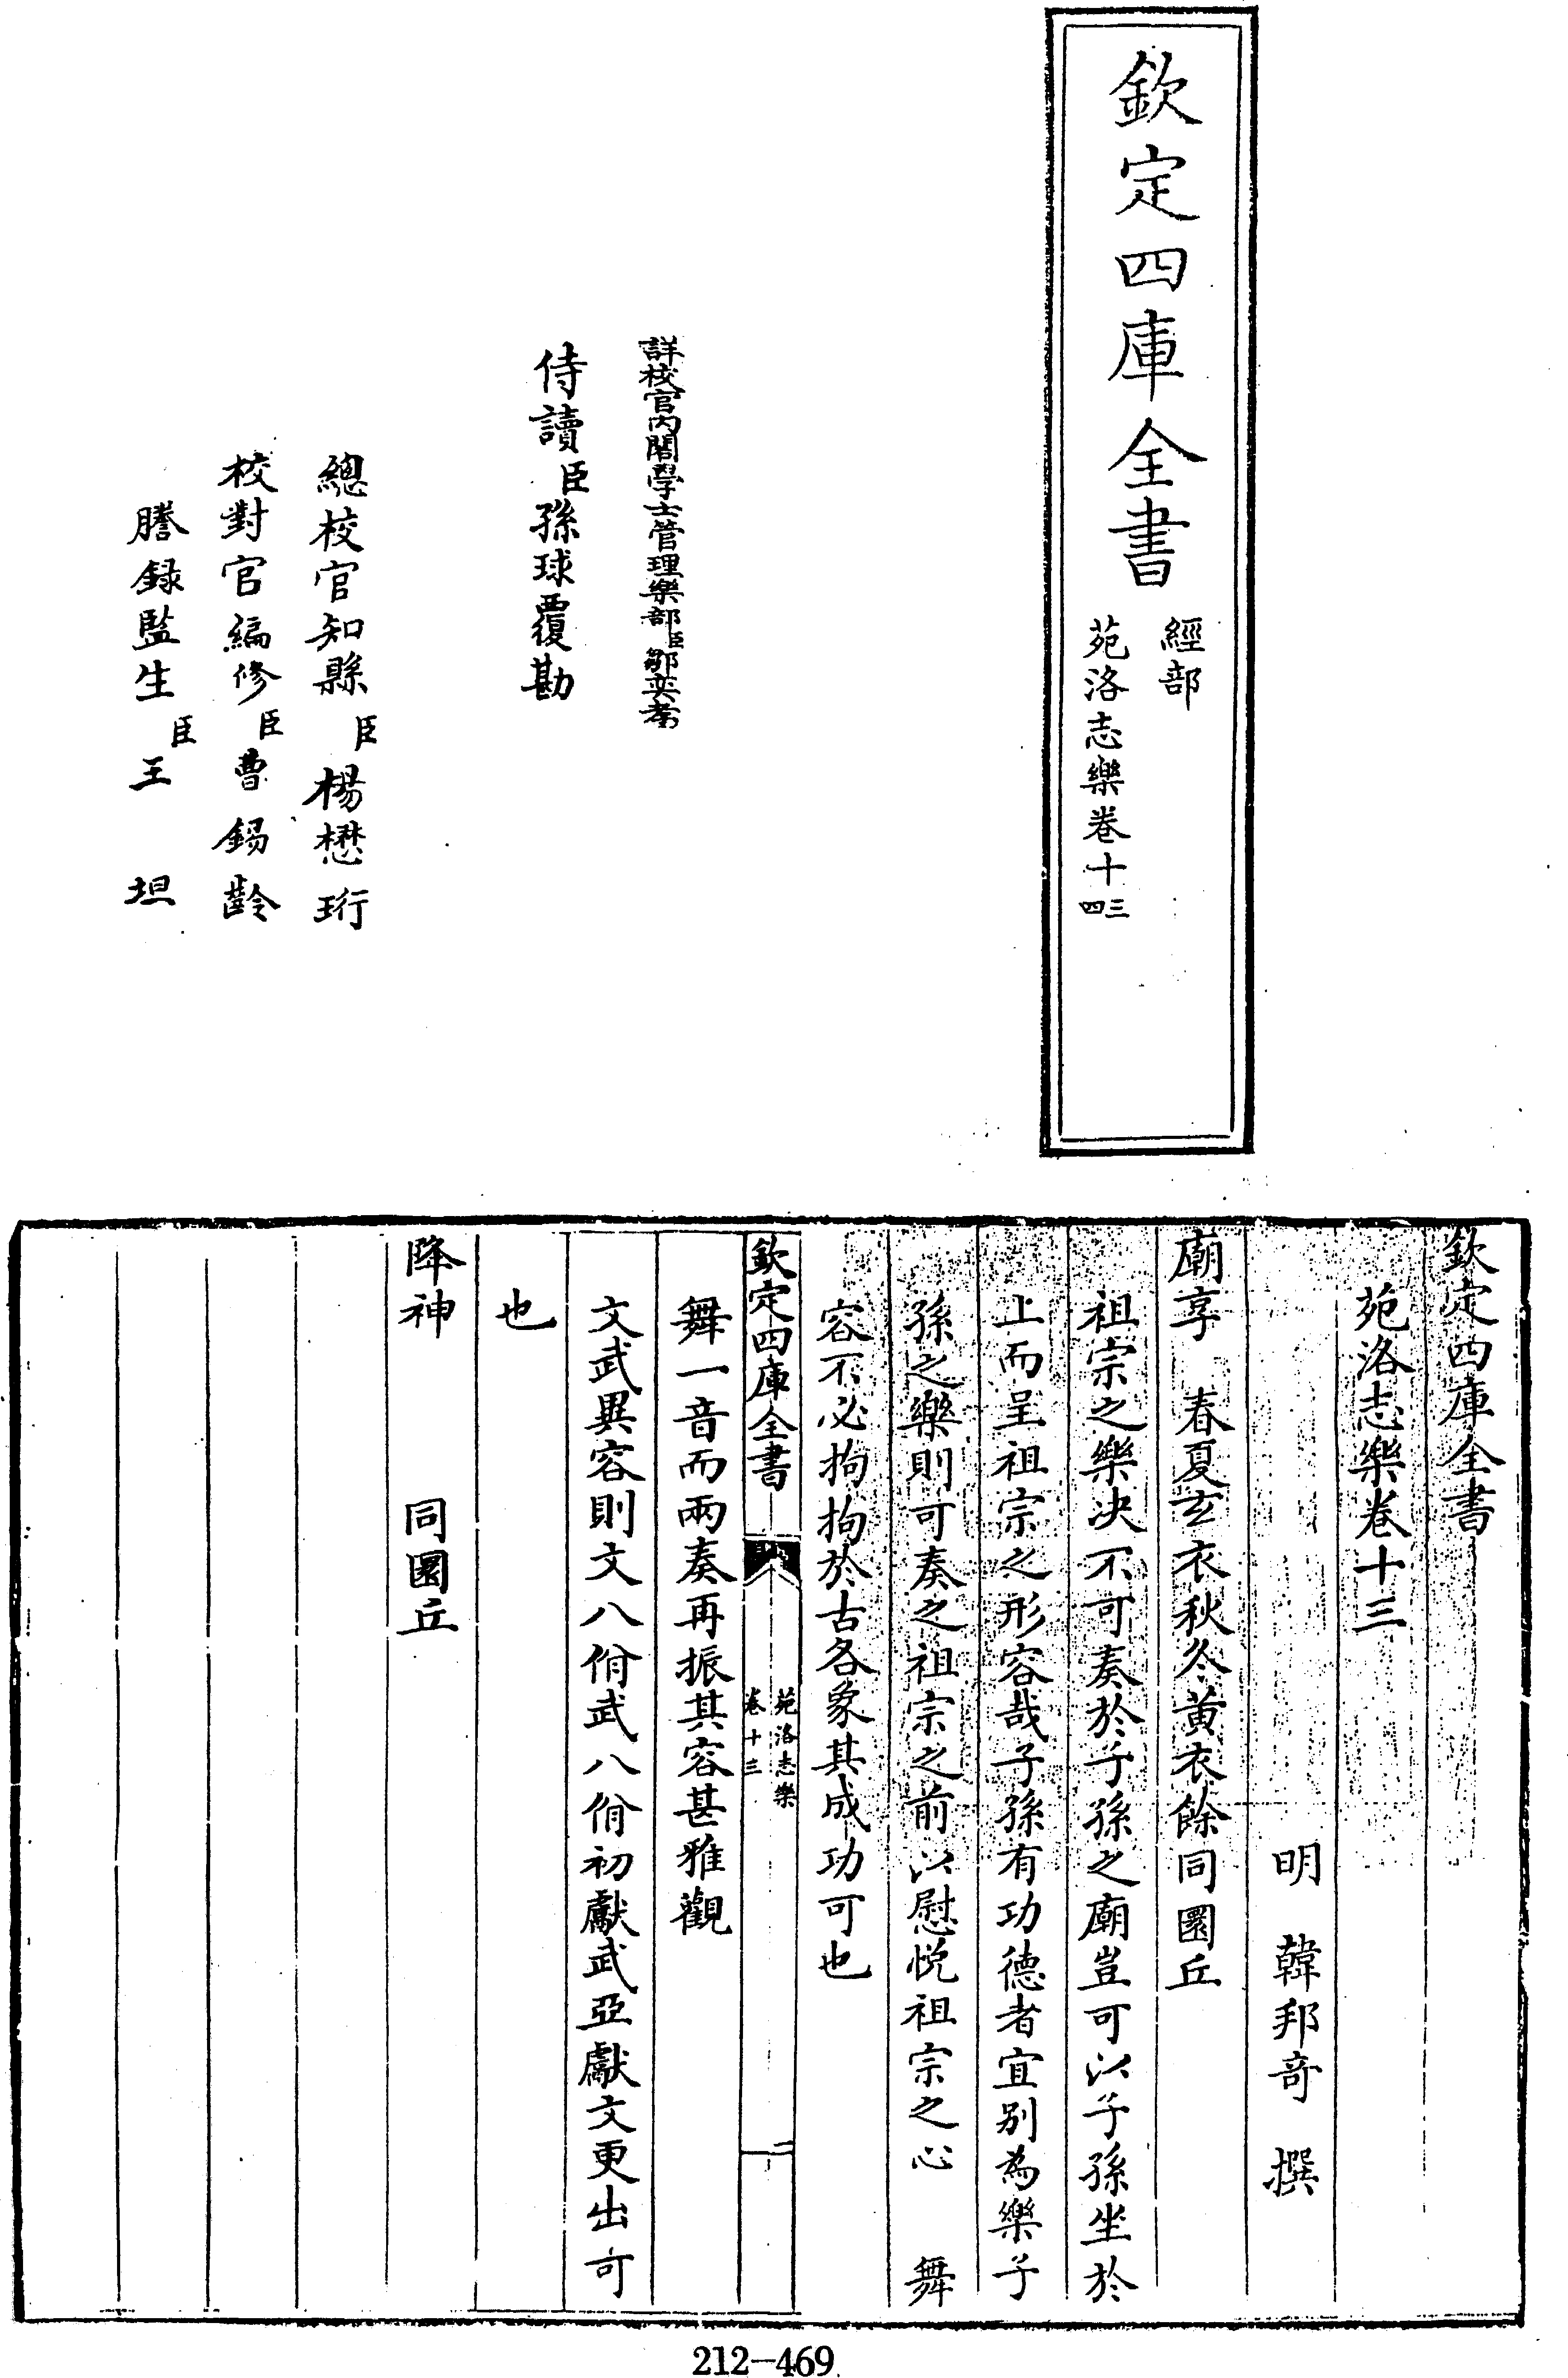 欽定四庫全書
經部
苑洛志樂卷十三四
詳校官內閣學士管理樂部臣鄒奕孝
侍讀臣孫球覆勘
總校官知縣臣楊懋珩
校對官編修臣曹錫齡
謄錄監生臣王坦
欽定四庫全書
苑洛志樂卷十三
明 韓邦奇 撰
廟享 春夏玄衣秋冬黃衣餘同圜丘
祖宗之樂決不可奏於子孫之廟豈可以子孫坐於
上而呈祖宗之形容哉子孫有功德者宜別為樂子
孫之樂則可奏之祖宗之前以慰悅祖宗之心 舞
容不必拘拘於古各象其成功可也
欽定四庫全書
苑洛志樂
卷十三
二
舞一音而兩奏再振其容甚雅觀
文武異容則文八佾武八佾初獻武亞獻文更出可
也
降神 同圜丘
212-469